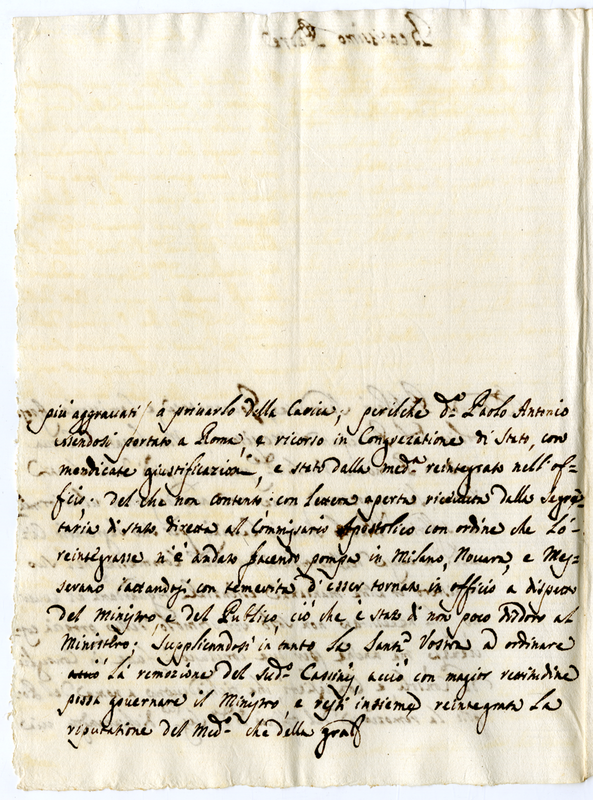 Beatissimo Padre
più aggravati / à privarlo della Carica; perilche d.º Paolo Antonio
essendosi portato a Roma, e ricorso in Congregatione di Stato, con
mendicate giustificazioni, e stato dalla med.ª reintegrato nell'of=
ficio; del che non contento; con lettera aperta ricevuta dalla Segre=
taria di Stato diretta al Commissario Apostolico con ordine che Ló
reintegrasse n'è andato facendo pompa in Milano, Novara, e Mes=
serano iactandosi con temerità d'esser tornato in officio a dispetto
del Ministro, e del Publico, ciò che è stato di non poco al
Ministero; Supplicandosi in tanto la Sant.ª Vostra ad ordinare
La remozione del sud.º Cassini acciò con magior rettitudine
possa governare il Ministro, e resti insieme reintegrata La
riputatione del Med.º che della grat